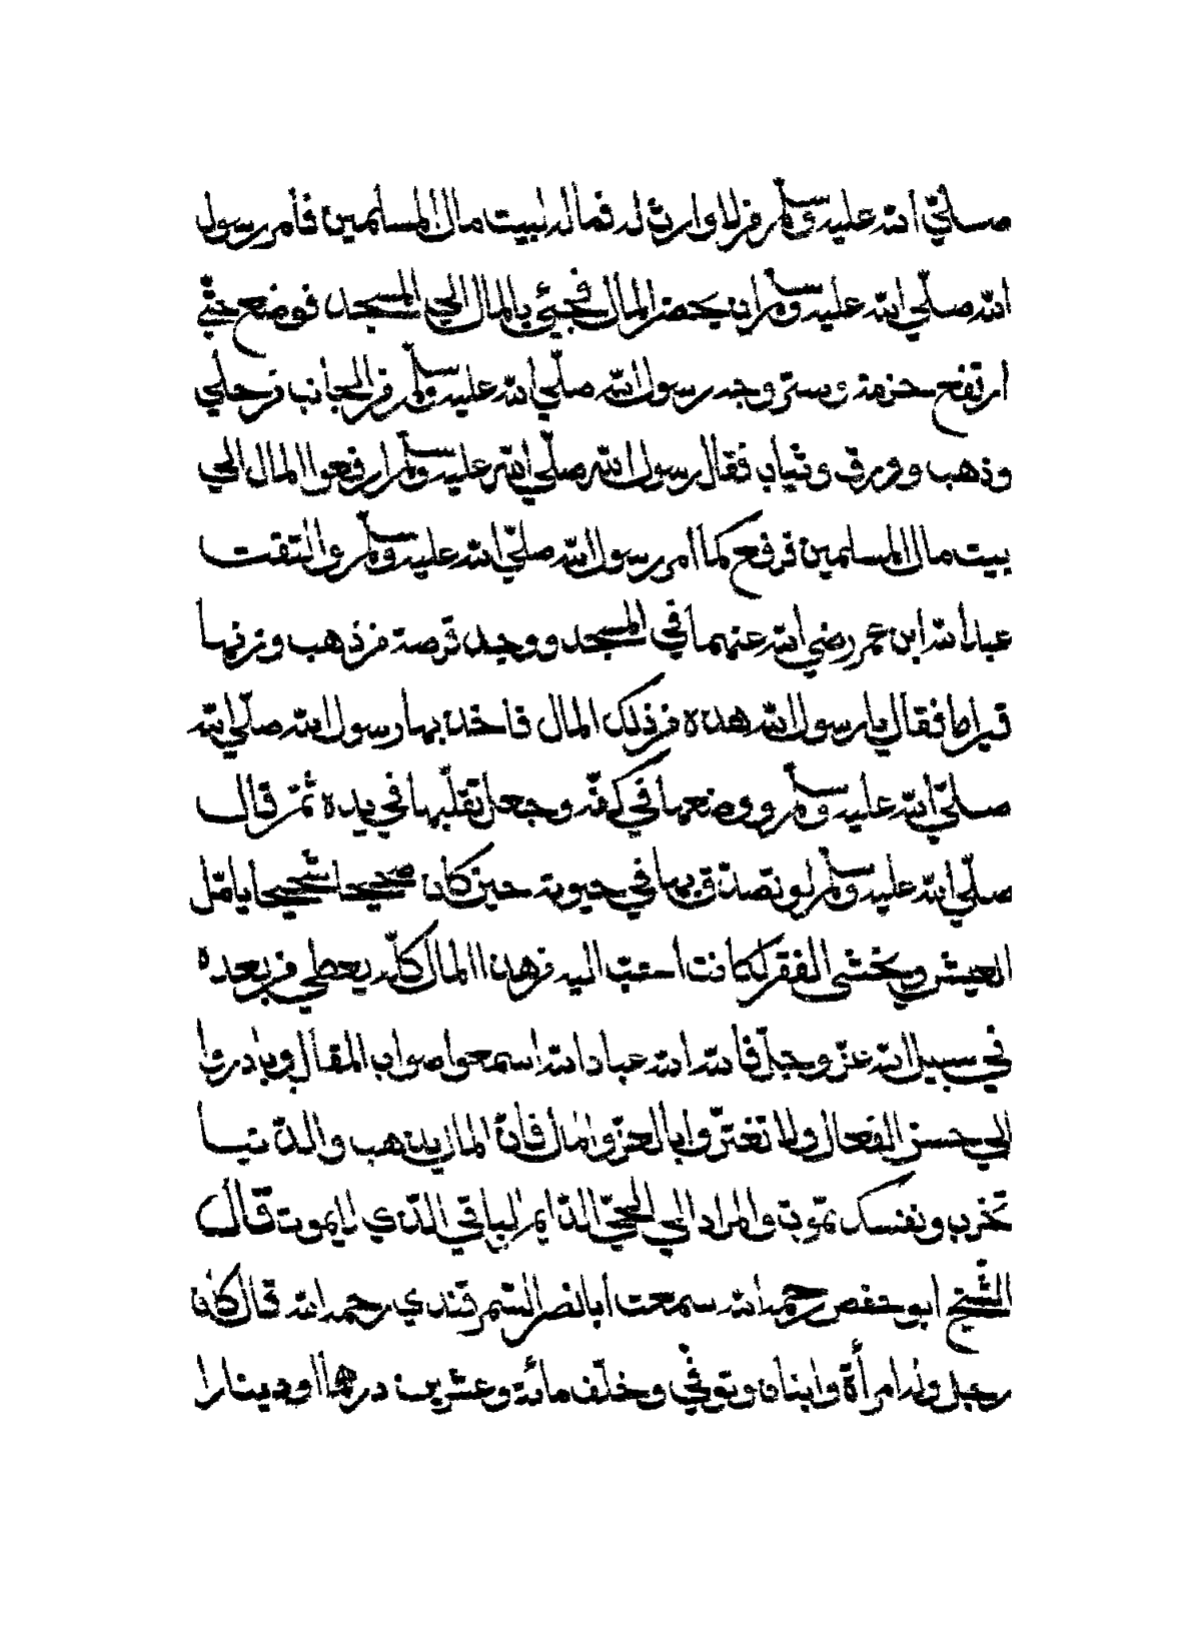 صلّي الله عليه وسلّم من لا وارث له فماله لبيت مال المسلمين فأمر رسول
الله صلّي الله عليه وسلّم ان يحضر المال فجيئ بالمال الي المسجد فوضع حتّي
ارتفع حزمة وستر وجه رسول الله صلّي الله عليه وسلّم من الجانب من حلي
وذهب وورق وثياب فقال رسول الله صلّي الله عليه وسلّم ارفعوا المال الي
بيت مال المسلمين فرفع كما امر رسول الله صلّي الله عليه وسلّم والتقت
عبد الله ابن عمر رضي الله عنهما في المسجد ووجد قرصة من ذهب وزنها
قيراط فقال يا رسول الله هذه من ذلك المال فاخذ بها رسول الله صلّي الله
صلّي الله عليه وسلّم ووضعها في كفّه وجعل تقلّبها في يده ثمّ قال
صلّي الله عليه وسلّم لو تصدّق بها في حيوته حين كان صحيحا شحيحا يامل
العيش ويخشي الفقر لكانت احبّ اليه من هذا المال كلّه يعطي من بعده
في سبيل الله عزّ وجلّ فالله الله عباد الله اسمعوا صواب المقال وبادروا
الي حسن الفعال ولا تغترّوا بالعزّ والمال فانّ المال يذهب والدّنيا
تخرب ونفسك تموت والمراد الي الحيّ الدّايم الباقي الّذي لا يموت قال
الشّيخ ابو حفص رحمه الله سمعت ابا نصر السّمرقندي رحمه الله قال كان
رجل وله امرأة وابنان وتوفّي وخلّف مائة وعشرين درهما او دينارا